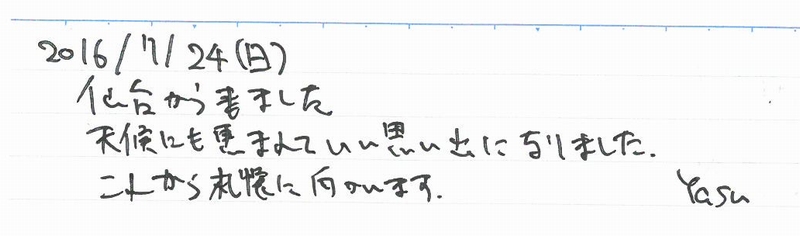 2016/7/24(日)
仙台から来ました
天候にも恵まれていい思い出になりました.
これから札幌に向かいます.
Yasu